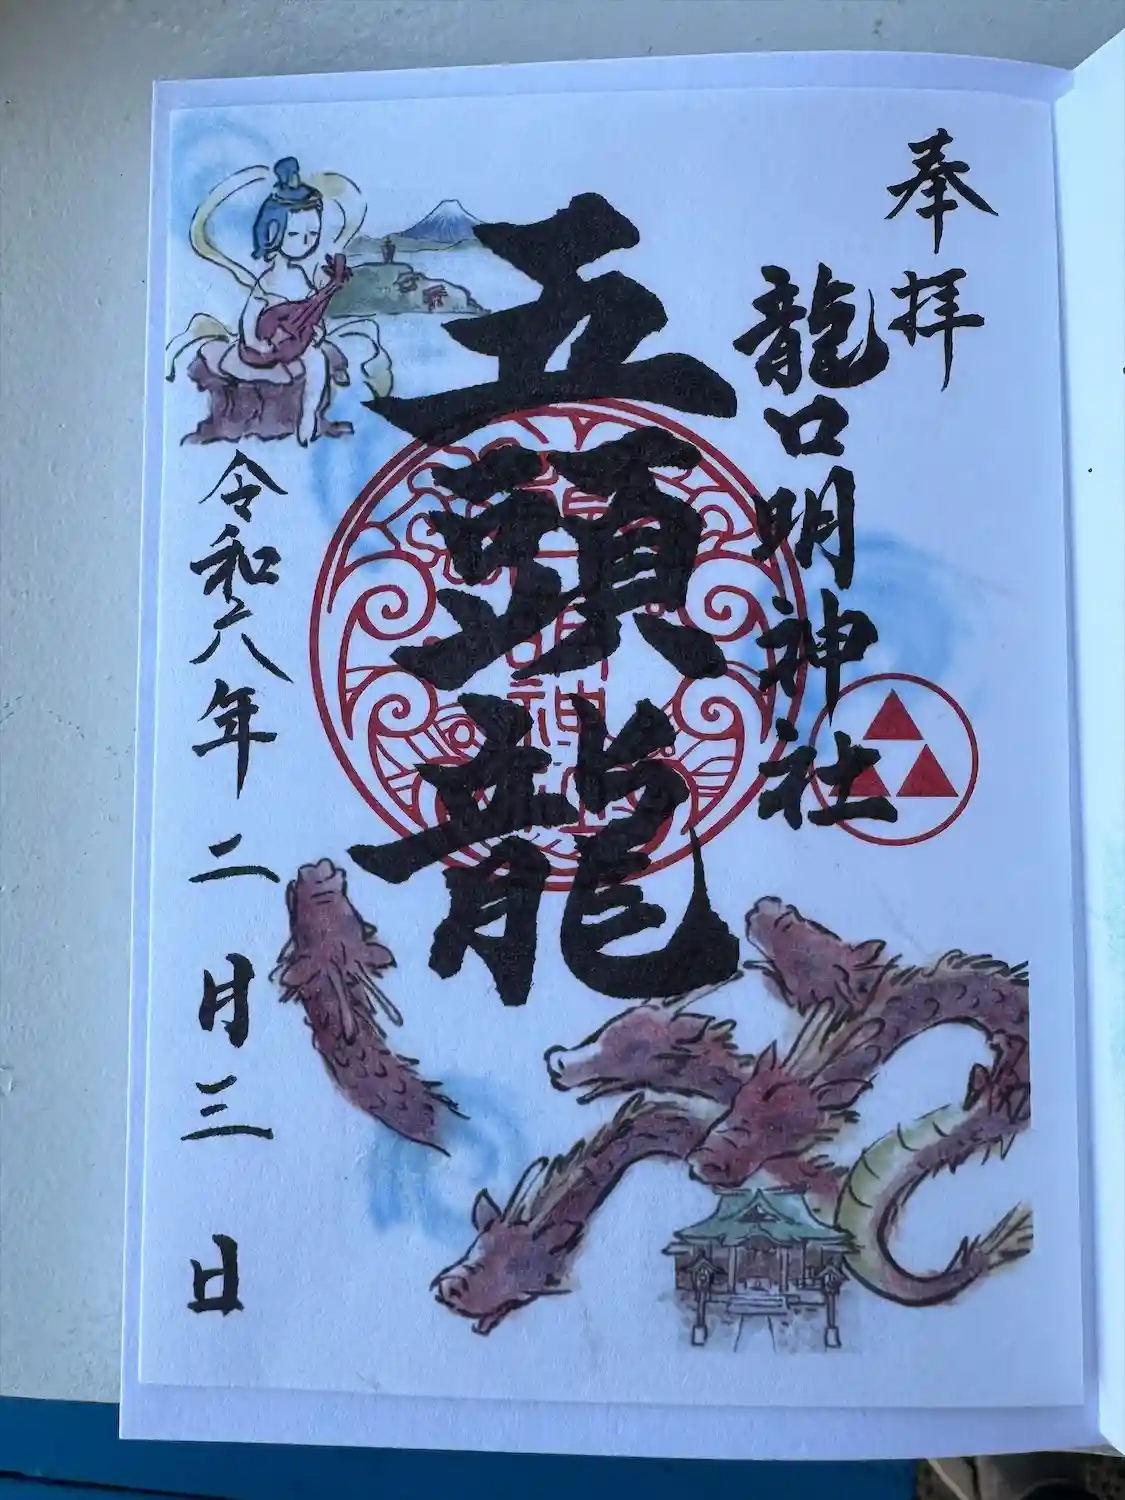 奉拝
龍口明神社
五頭龍
令和六年二月三日